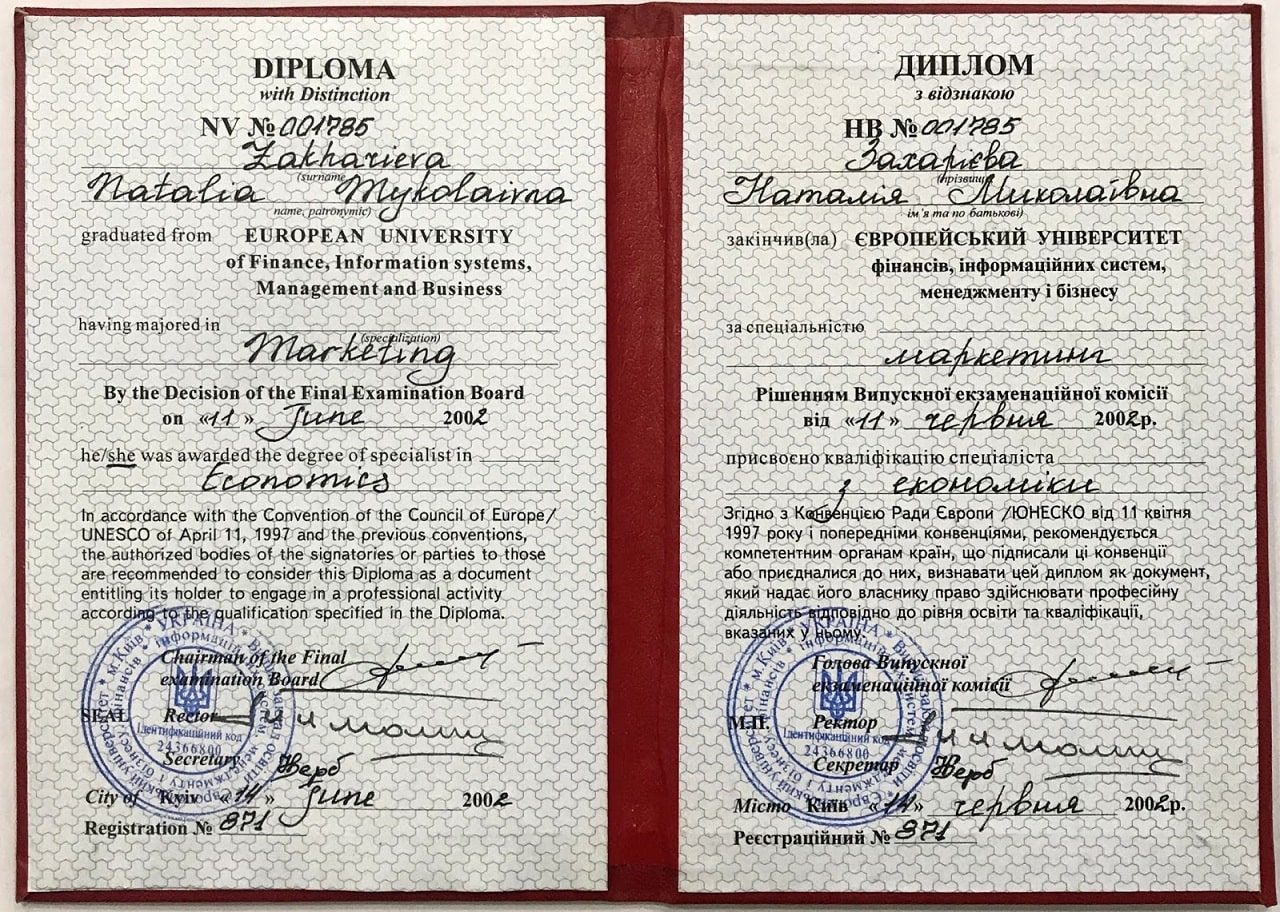 DIPLOMA
with Distinction
NV № 001785
Zakharieva
(surname
Natalia Mykolaivna
name, patronymic)
graduated from EUROPEAN UNIVERSITY
of Finance, Information systems,
Management and Business
having majored in
(specialization)
Marketing
By the Decision of the Final Examination Board
on «11» June 2002
he/she was awarded the degree of specialist in
Economics
In accordance with the Convention of the Council of Europe/
UNESCO of April 11, 1997 and the previous conventions,
the authorized bodies of the signatories or parties to those
are recommended to consider this Diploma as a document
entitling its holder to engage in a professional activity
according to the qualification specified in the Diploma.
Chairman of the Final
examination Board
SEAL Rector
Secretary
City of Kyiv «14» June 2002
Registration № 871
УКРАЇНА
м.Київ
Ідентифікаційний код
24366800
ДИПЛОМ
з відзнакою
НВ № 001785
Захарієва
(прізвище
Наталія Миколаївна
ім'я та по батькові)
закінчив(ла) ЄВРОПЕЙСЬКИЙ УНІВЕРСИТЕТ
фінансів, інформаційних систем,
менеджменту і бізнесу
за спеціальністю
маркетинг
Рішенням Випускної екзаменаційної комісії
від «11» червня 2002р.
присвоєно кваліфікацію спеціаліста
з економіки
Згідно з Конвенцією Ради Європи /ЮНЕСКО від 11 квітня
1997 року і попередніми конвенціями, рекомендується
компетентним органам країн, що підписали ці конвенції
або приєдналися до них, визнавати цей диплом як документ,
який надає його власнику право здійснювати професійну
діяльність відповідно до рівня освіти та кваліфікації,
вказаних у ньому.
Голова Випускної
екзаменаційної комісії
М.П. Ректор
Секретар
Місто Київ «14» червня 2002р.
Реєстраційний № 871
УКРАЇНА
м.Київ
Ідентифікаційний код
24366800